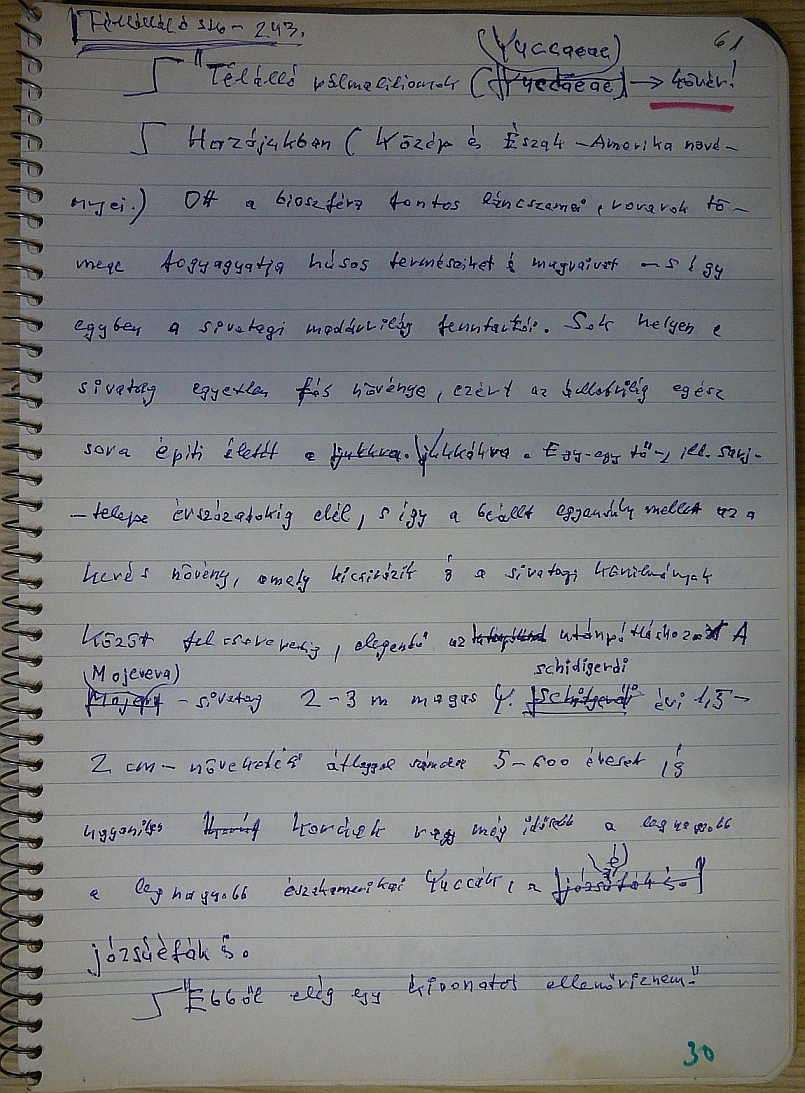 Télálló 516 - 243.
61
(Yuccaeae)
"Télálló pálmaliliomok (Yuccaeae) → kövér!
Hazájukban (Közép és Észak-Amerika növé-
nyei.) Ott a bioszféra fontos láncszemei, rovarok tö-
mege fogyasztja húsos terméseiket és magvaivat - s így
egyben a sivatagi madárvilág fenntartói. Sok helyen a
sivatag egyetlen fás növénye, ezért az állatvilág egész
sora építi életét a jukkákra. Egy-egy tő-, ill. sarj-
-telepe évszázatokig elél, s így a beállt egyensúly mellett az a
kevés növény, amely kicsirázik és a sivatagi körülmények
között felcseveredig, elegendő az utánpótláshoz. A
(Mojeveva) schidigerdi
- sivatag 2-3 m magas Y. évi 1,5-
2 cm-növekedés átlaggal számolva 5-600 évesek is
ugyanilyen korúak vagy még idősebb a legnagyobb
a legnagyobb északamerikai Yuccák, a
józsuéfák is.
"Ebből elég egy kivonatot ellenőriznem."
30